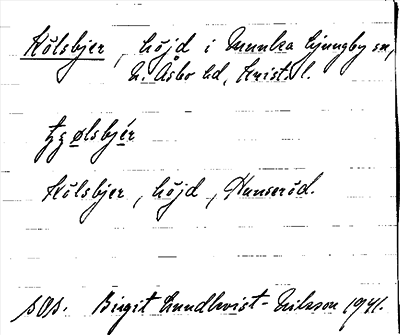 Kölsbjer, höjd i Munka Ljungby sn,
N. Åsbo hd, Krist. l.
tʒølsbjér
Kölsbjer, höjd, Hunseröd.
sas. Birgit Lundkvist-Nilsson 1941.